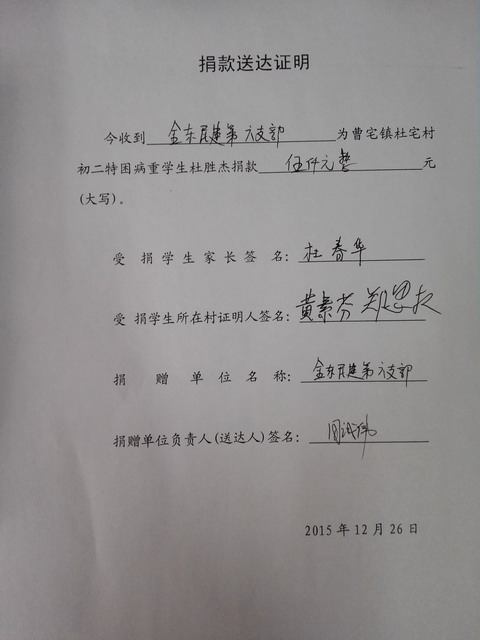 捐款送达证明
今收到 金东民建第六支部 为曹宅镇杜宅村
初二特困病重学生杜胜杰捐款 伍仟元整 元
(大写)。
受捐学生家长签名: 杜春华
受捐学生所在村证明人签名: 黄素芬 郑
捐赠单位名称: 金东民建第六支部
捐赠单位负责人(送达人)签名:
2015年12月26日